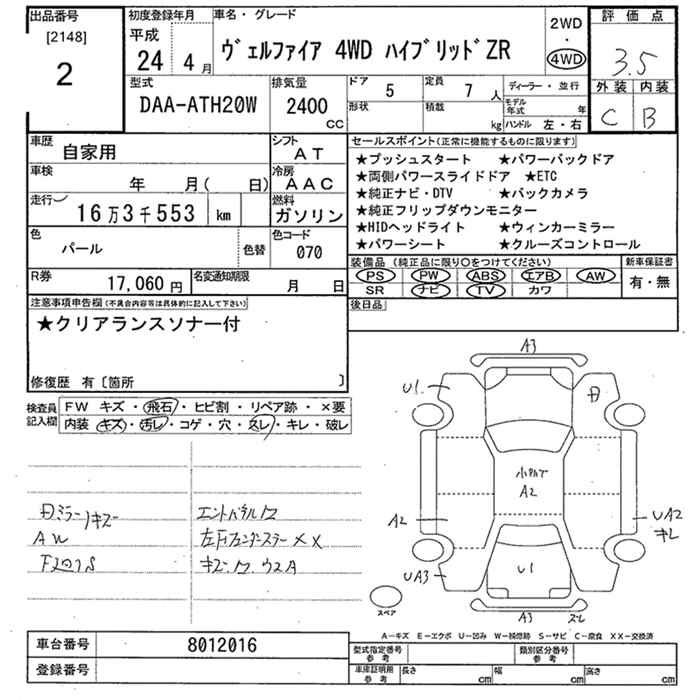 出品番号
[2148]
2
初度登録年月
平成
24 年 4 月
車名・グレード
ヴェルファイア 4WD ハイブリッドZR
2WD
・
4WD
評価点
3.5
外装 内装
C B
型式
DAA-ATH20W
排気量
2400
CC
ドア 5
定員 7 人
ディーラー・並行
形状
積載 kg
モデル年式 年
ハンドル 左・右
車歴
自家用
シフト
AT
車検
年 月( 日)
冷房
AAC
走行
16万3千553 km
燃料
ガソリン
色
パール
色替
色コード
070
R券
17,060円
名変通知期限
月 日
セールスポイント(正常に機能するものに限ります)
★プッシュスタート ★パワーバックドア
★両側パワースライドドア ★ETC
★純正ナビ・DTV ★バックカメラ
★純正フリップダウンモニター
★HIDヘッドライト ★ウィンカーミラー
★パワーシート ★クルーズコントロール
装備品(純正品に限り○をつけてください)
PS PW ABS エアB AW
SR ナビ TV カワ
新車保証書
有・無
後日品
注意事項申告欄(不具合内容等は具体的に記入して下さい)
★クリアランスソナー付
修復歴 有〔箇所 〕
検査員記入欄
FW キズ・飛石・ヒビ割・リペア跡・×要
内装 キズ・汚レ・コゲ・穴・スレ・キレ・破レ
ミラー キズ
AW
左Fフェンダーステー ××
A3
U1
A2
A2
UA2
キレ
UA3
U1
A3 スレ
スペア
A-キズ E-エクボ U-凹み W-補修跡 S-サビ C-腐食 XX-交換済
車台番号
8012016
登録番号
型式指定番号
参考
類別区分番号
参考
車庫証明用
参考
長さ cm
幅 cm
高さ cm